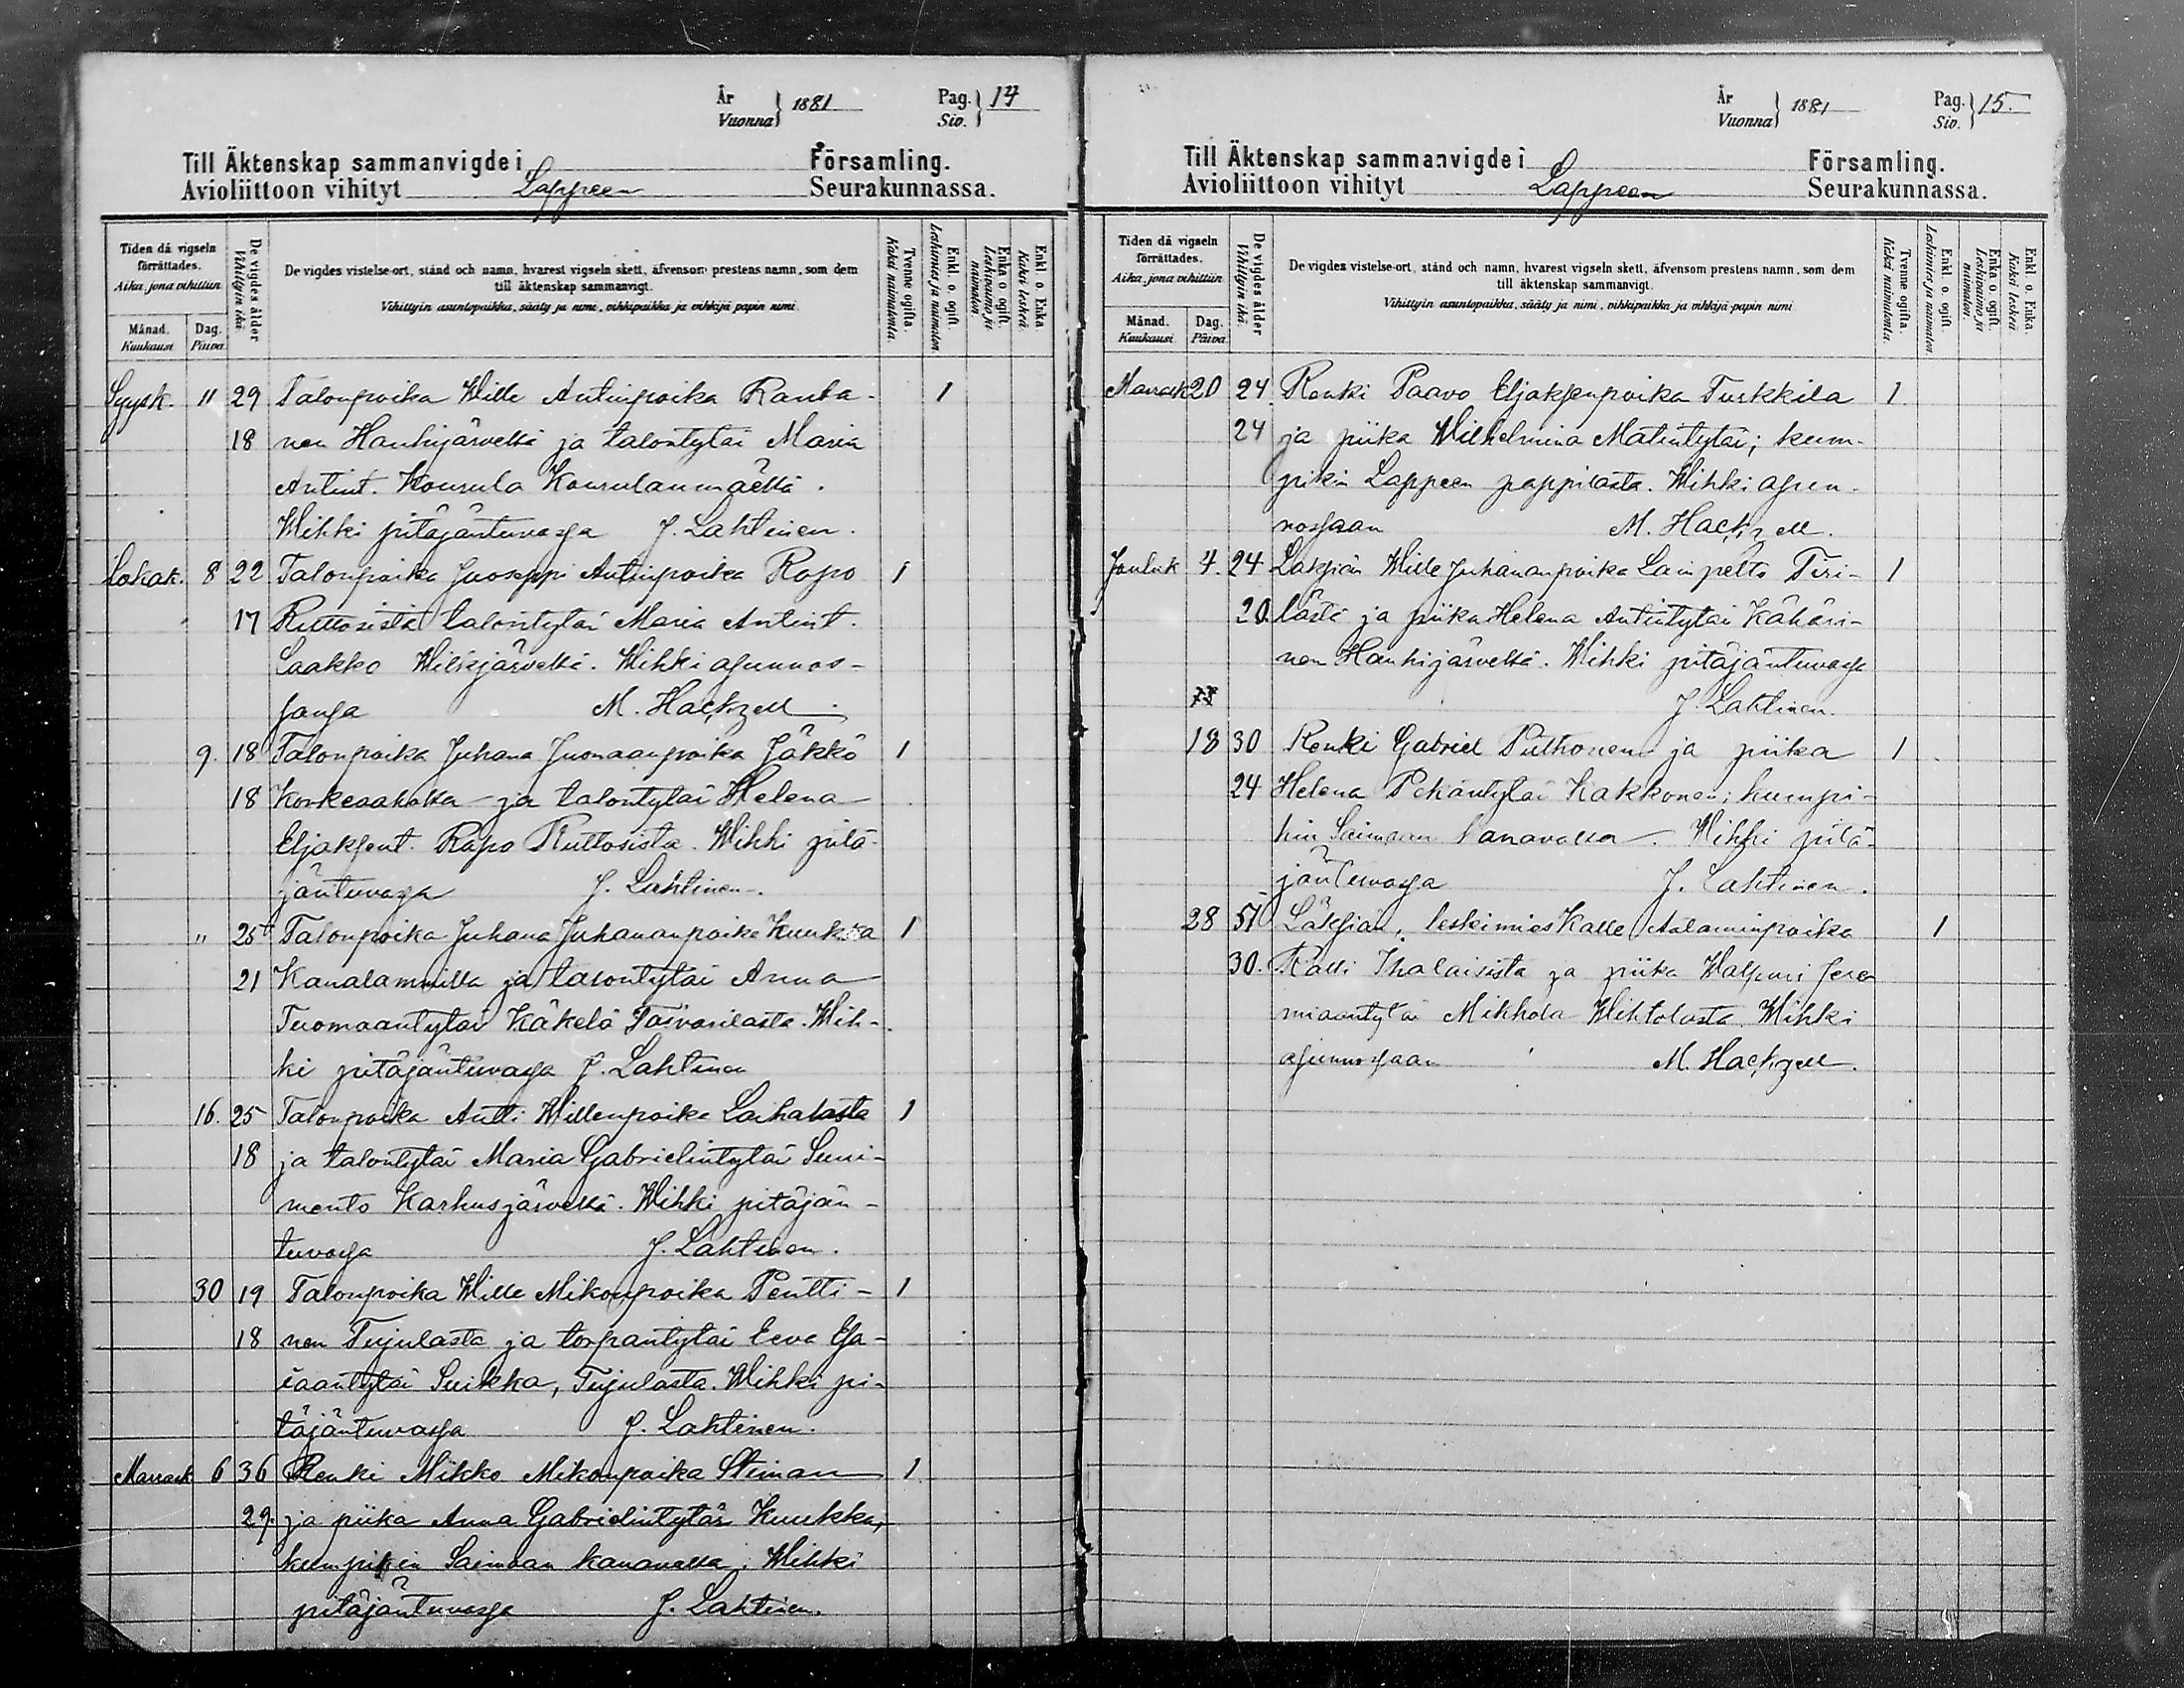 År
Vuonna } 1881 Pag.
Siv. } 14
Till Äktenskap sammanvigde i Församling.
Avioliittoon vihityt Lappeen Seurakunnassa.
Tiden då vigseln förrättades.
Aika, jona vihittiin
Månad. Kuukausi. Dag. Päivä.
De vigdes ålder
Vihittyin ikä.
De vigdes vistelse-ort, stånd och namn, hvarest vigseln skett, äfvensom prestens namn, som dem
till äktenskap sammanvigt.
Vihittyin asuntopaikka, sääty ja nimi, vihkipaikka ja vihkijä papin nimi.
Tvenne ogifta.
Kaksi naimatonta.
Enkl. o. ogift.
Leskimies ja naimaton.
Enka o. ogift.
Leskivaimo ja naimaton.
Enkl. o. Enka
Kaksi leskeä
Syysk. 11 29 Talonpoika Wille Antinpoika Ranta- 1
18 nen Hanhijärveltä ja talontytär Maria
Antint. Kourula Kourulanmäeltä.
Wihki pitäjäntuvassa J. Lahtinen.
Lokak. 8 22 Talonpoika Juoseppi Antinpoika Rapo 1
17 Ruttosista talontytär Maria Antint.
Laakko Wilkjärveltä. Wihki asunnos-
sansa M. Hackzell.
9. 18 Talonpoika Juhana Juonaanpoika Jäkkö 1
18 Korkeaaholta ja talontytär Helena
Eljaksent. Rapo Ruttosista. Wihki pitä-
jäntuvassa J. Lahtinen.
" 25 Talonpoika Juhana Juhananpoika Kuukka 1
21 Kanalammilla ja talontytär Anna
Tuomaantytär Käkelä Toivarilasta. Wih-
ki pitäjäntuvassa J. Lahtinen
16. 25 Talonpoika Antti Willenpoika Laihalasta 1
18 ja talontytär Maria Gabrielintytär Suni-
mento Karhusjärveltä. Wihki pitäjän-
tuvassa J. Lahtinen.
30 19 Talonpoika Wille Mikonpoika Pentti- 1
18 nen Tujulasta ja torpantytär Eeva Esa-
iaantytär Suikka, Tujulasta. Wihki pi-
täjäntuvassa J. Lahtinen.
Marrask 6 36 Renki Mikko Mikonpoika Steman 1
29. ja piika Anna Gabrielintytär Kuukka,
kumpikin Saimaan kanavalla. Wihki
pitäjäntuvassa J. Lahtinen.
År
Vuonna } 1881 Pag.
Siv. } 15.
Till Äktenskap sammanvigde i Församling.
Avioliittoon vihityt Lappeen Seurakunnassa.
Tiden då vigseln förrättades.
Aika, jona vihittiin
Månad. Kuukausi. Dag. Päivä.
De vigdes ålder
Vihittyin ikä.
De vigdes vistelse-ort, stånd och namn, hvarest vigseln skett, äfvensom prestens namn, som dem
till äktenskap sammanvigt.
Vihittyin asuntopaikka, sääty ja nimi, vihkipaikka ja vihkijä-papin nimi
Tvenne ogifta.
Kaksi naimatonta.
Enkl. o. ogift.
Leskimies ja naimaton.
Enka o. ogift.
Leskivaimo ja naimaton.
Enkl. o. Enka.
Kaksi leskeä
Marrask 20 24 Renki Paavo Eljaksenpoika Turkkila 1
24 ja piika Wilhelmina Matintytär; kum-
pikin Lappeen pappilasta. Wihki asun-
nossaan M. Hackzell.
Jouluk 4. 24 Läksiän Wille Juhananpoika Lampelto Tiri- 1
20. lästä ja piika Helena Antintytär Kähäri-
nen Hanhijärveltä. Wihki pitäjäntuvassa
J. Lahtinen.
18 30 Renki Gabriel Pulkonen ja piika 1
24 Helena Pekäntytär Kakkonen; kumpi-
kin Saimaan kanavalla. Wihki pitä-
jäntuvassa J. Lahtinen.
28 51 Läksiän, leskimies Kalle Aataminpoika 1
30. Källi Ihalaisista ja piika Walpuri Jere-
miaantytär Mikkola Wihtolasta. Wihki
asunnossaan M. Hackzell.